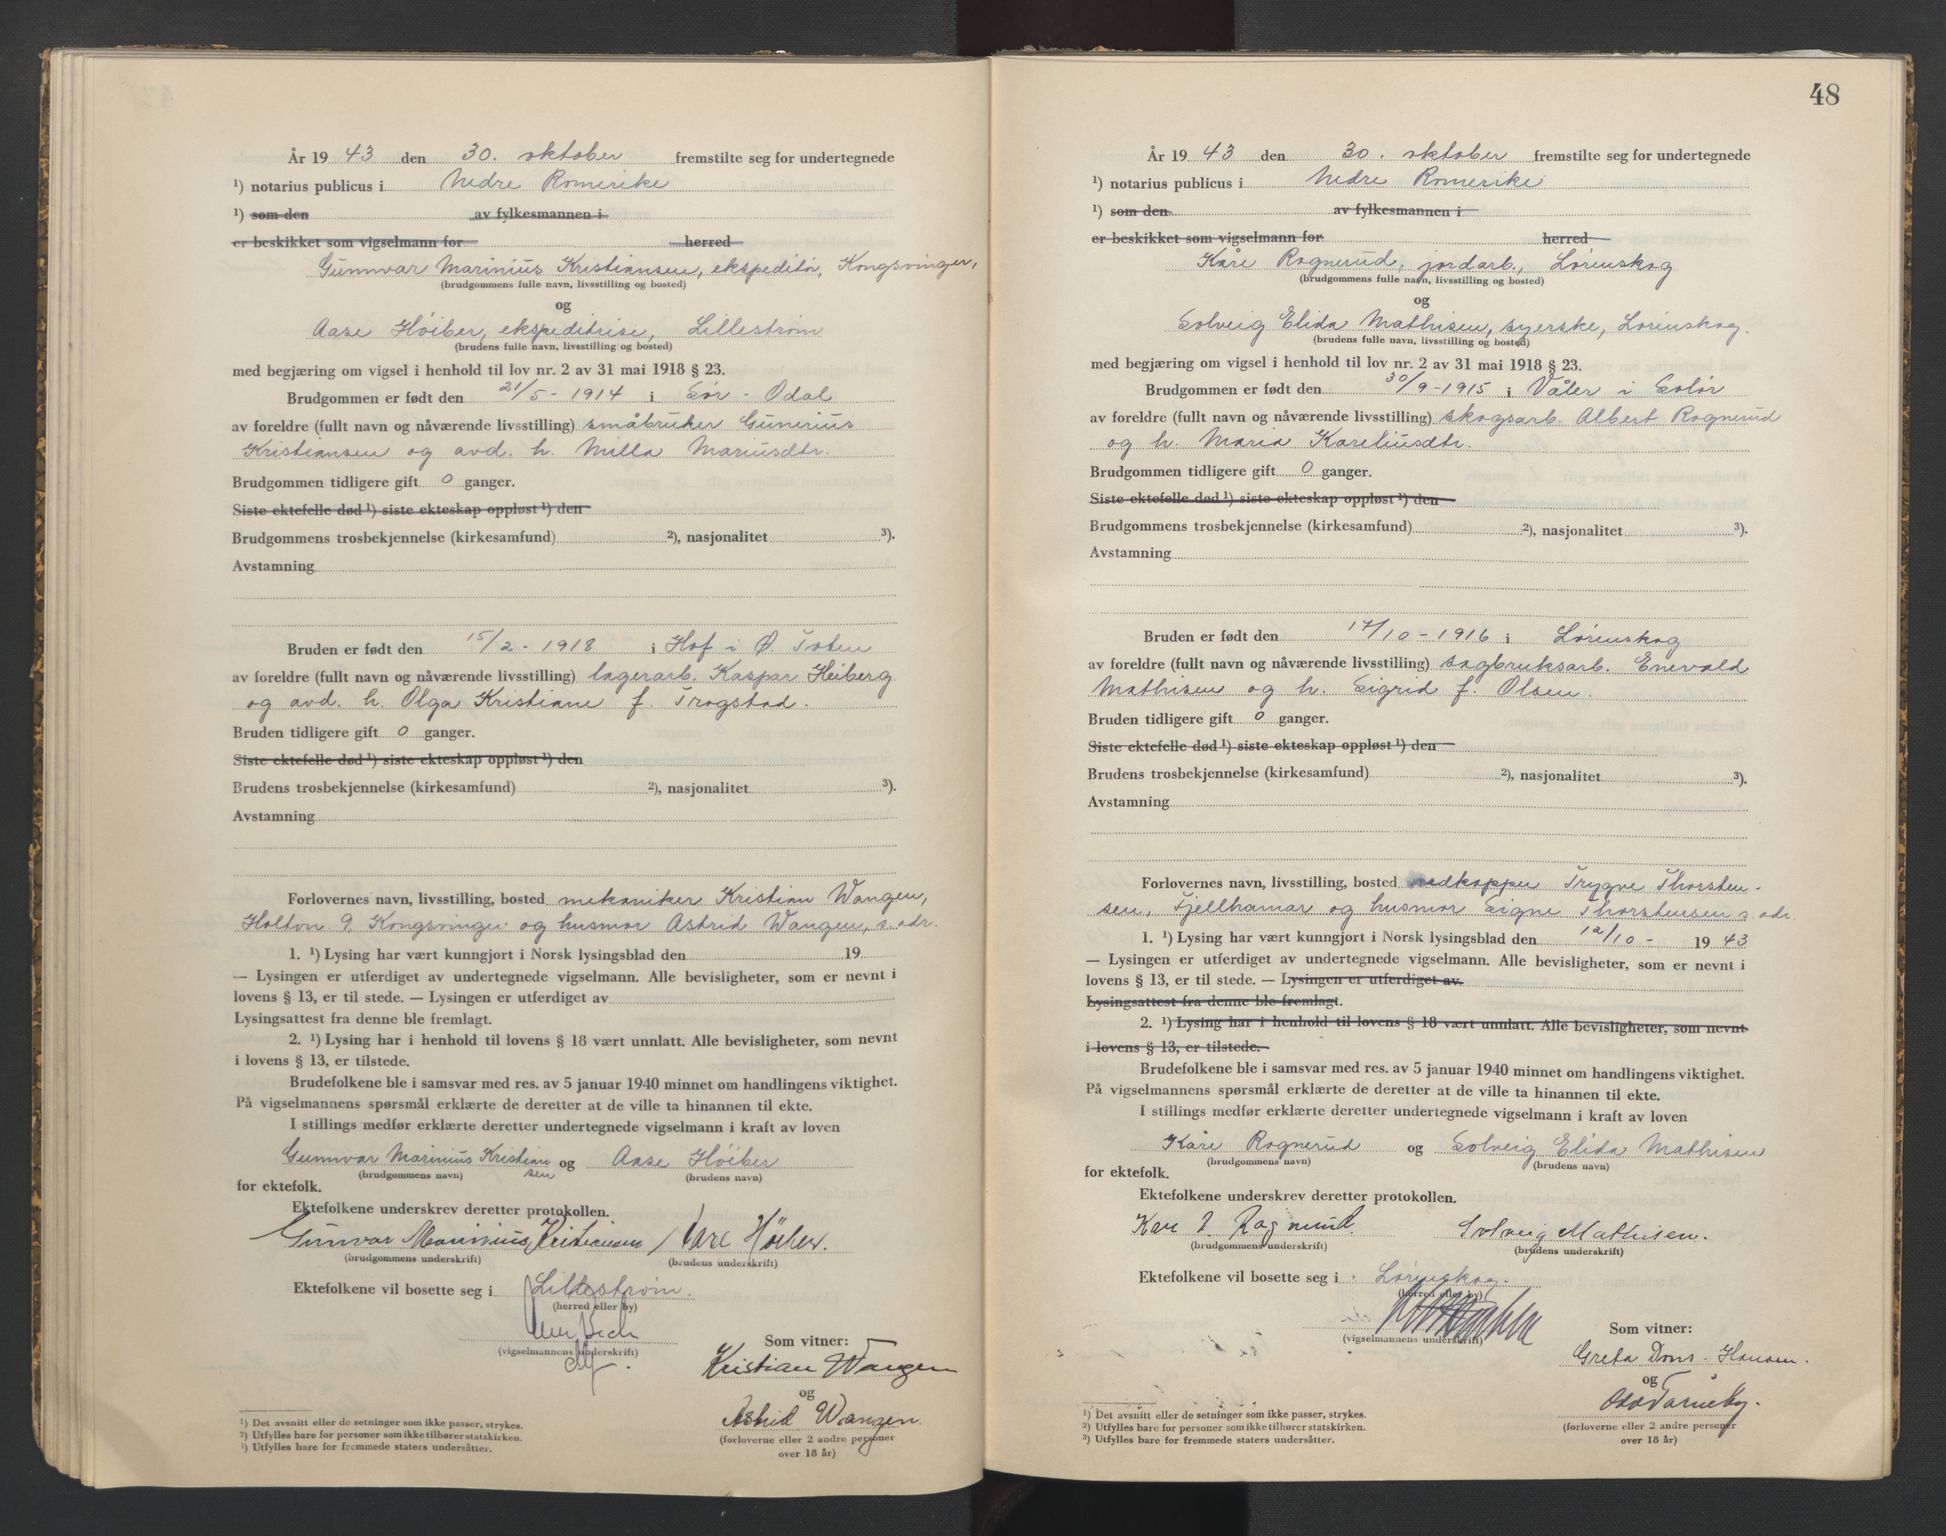 År 19 43 den 30. oktober fremstilte seg for undertegnede
¹) notarius publicus i Nedre Romerike
¹) som den av fylkesmannen i
er beskikket som vigselmann for herred
Gunnvar Marinius Kristiansen, ekspeditør, Kongsvinger,
(brudgommens fulle navn, livsstilling og bosted)
og
Aase Høiber, ekspeditrise, Lillestrøm
(brudens fulle navn, livsstilling og bosted)
med begjæring om vigsel i henhold til lov nr. 2 av 31 mai 1918 § 23.
Brudgommen er født den 21/5 - 1914 i Sør - Odal
av foreldre (fullt navn og nåværende livsstilling) småbruker Gunerius
Kristiansen og avd. h. Milla Mariusdtr.
Brudgommen tidligere gift 0 ganger.
Siste ektefelle død ¹) siste ekteskap oppløst ¹) den
Brudgommens trosbekjennelse (kirkesamfund) ²), nasjonalitet ³).
Avstamning
Bruden er født den 15/2 - 1918 i Hof i Ø. Toten
av foreldre (fullt navn og nåværende livsstilling) lagerarb. Kaspar Heiberg
og avd. h. Olga Kristiane f. Trogstad.
Bruden tidligere gift 0 ganger.
Siste ektefelle død ¹) siste ekteskap oppløst ¹) den
Brudens trosbekjennelse (kirkesamfund) ²), nasjonalitet ³).
Avstamning
Forlovernes navn, livsstilling, bosted mekaniker Kristian Wangen,
Holtvn. 9 Kongsvinger og husmor Astrid Wangen, s. adr.
1. ¹) Lysing har vært kunngjort i Norsk lysingsblad den 19
— Lysingen er utferdiget av undertegnede vigselmann. Alle bevisligheter, som er nevnt i
lovens § 13, er til stede. — Lysingen er utferdiget av
Lysingsattest fra denne ble fremlagt.
2. ¹) Lysing har i henhold til lovens § 18 vært unnlatt. Alle bevisligheter, som nevnt
i lovens § 13, er tilstede.
Brudefolkene ble i samsvar med res. av 5 januar 1940 minnet om handlingens viktighet.
På vigselmannens spørsmål erklærte de deretter at de ville ta hinannen til ekte.
I stillings medfør erklærte deretter undertegnede vigselmann i kraft av loven
Gunnvar Marinius Kristiansen og Aase Høiber
(brudgommens navn) (brudens navn)
for ektefolk.
Ektefolkene underskrev deretter protokollen.
Gunvar Marinius Kristiansen / Aase Höiber.
(brudgommens underskrift) (brudens underskrift)
Ektefolkene vil bosette seg i Lillestrøm.
(herred eller by)
(vigselmannens underskrift)
Som vitner:
Kristian Wangen
og
Astrid Wangen.
(forloverne eller 2 andre personer
over 18 år)
¹) Det avsnitt eller de setninger som ikke passer, strykes.
²) Utfylles bare for personer som ikke tilhører statskirken.
³) Utfylles bare for fremmede staters undersåtter.
48
År 19 43 den 30. oktober fremstilte seg for undertegnede
¹) notarius publicus i Nedre Romerike
¹) som den av fylkesmannen i
er beskikket som vigselmann for herred
Kåre Rognerud, jordarb., Lørenskog
(brudgommens fulle navn, livsstilling og bosted)
og
Solveig Elida Mathisen, syerske, Lørenskog.
(brudens fulle navn, livsstilling og bosted)
med begjæring om vigsel i henhold til lov nr. 2 av 31 mai 1918 § 23.
Brudgommen er født den 30/9 - 1915 i Våler i Solør
av foreldre (fullt navn og nåværende livsstilling) skogsarb. Albert Rognerud
og h. Maria Kareliusdtr.
Brudgommen tidligere gift 0 ganger.
Siste ektefelle død ¹) siste ekteskap oppløst ¹) den
Brudgommens trosbekjennelse (kirkesamfund) ²), nasjonalitet ³).
Avstamning
Bruden er født den 17/10 - 1916 i Lørenskog
av foreldre (fullt navn og nåværende livsstilling) sagbruksarb. Enevald
Mathisen og h. Sigrid f. Olsen.
Bruden tidligere gift 0 ganger.
Siste ektefelle død ¹) siste ekteskap oppløst ¹) den
Brudens trosbekjennelse (kirkesamfund) ²), nasjonalitet ³).
Avstamning
Forlovernes navn, livsstilling, bosted vedkapper Trygve Thorsten-
sen, Fjellhamar og husmor Signe Thorstensen s. adr.
1. ¹) Lysing har vært kunngjort i Norsk lysingsblad den 12/10 - 19 43
— Lysingen er utferdiget av undertegnede vigselmann. Alle bevisligheter, som er nevnt i
lovens § 13, er til stede. — Lysingen er utferdiget av
Lysingsattest fra denne ble fremlagt.
2. ¹) Lysing har i henhold til lovens § 18 vært unnlatt. Alle bevisligheter, som nevnt
i lovens § 13, er tilstede.
Brudefolkene ble i samsvar med res. av 5 januar 1940 minnet om handlingens viktighet.
På vigselmannens spørsmål erklærte de deretter at de ville ta hinannen til ekte.
I stillings medfør erklærte deretter undertegnede vigselmann i kraft av loven
Kåre Rognerud og Solveig Elida Mathisen
(brudgommens navn) (brudens navn)
for ektefolk.
Ektefolkene underskrev deretter protokollen.
Kåre Rognerud. Solveig Mathisen.
(brudgommens underskrift) (brudens underskrift)
Ektefolkene vil bosette seg i Lørenskog.
(herred eller by)
(vigselmannens underskrift)
Som vitner:
Greta Dons-Hansen.
og
(forloverne eller 2 andre personer
over 18 år)
¹) Det avsnitt eller de setninger som ikke passer, strykes.
²) Utfylles bare for personer som ikke tilhører statskirken.
³) Utfylles bare for fremmede staters undersåtter.